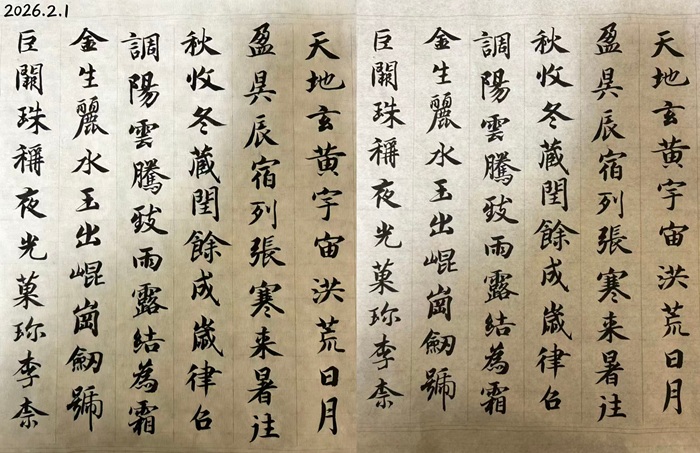 2026.2.1
天地玄黃宇宙洪荒日月
盈昃辰宿列張寒来暑往
秋收冬藏閏餘成歲律召
調陽雲騰致雨露結為霜
金生麗水玉出崐崗劒號
巨闕珠稱夜光菓珎李柰
天地玄黃宇宙洪荒日月
盈昃辰宿列張寒来暑往
秋收冬藏閏餘成歲律召
調陽雲騰致雨露結為霜
金生麗水玉出崐崗劒號
巨闕珠稱夜光菓珎李柰